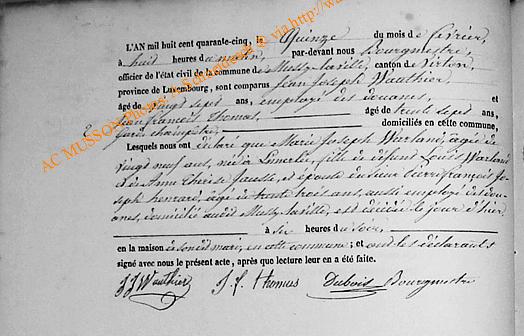 L'AN mil huit cent quarante-cinq, le Quinze du mois de février,
à huit heures du matin, par-devant nous Bourgmestre,
officier de l'état civil de la commune de Mussy-laville, canton de Virton,
province de Luxembourg, sont comparus Jean Joseph Wauthier
âgé de vingt sept ans, employé des douanes, et
Jean françois Thomas, âgé de trente sept ans,
Garde champêtre, domiciliés en cette commune,
Lesquels nous ont déclaré que Marie Joseph Warland, âgée de
vingt neuf ans, née à fille de défunt Louis Warland
et de Anne Thérèse et épouse de Sieur françois Jo-
seph henrard, âgé de trente trois ans, aussi employé des dou-
anes, domicilié audit Mussy-laville, est décédée le jour d'hier
à six heures du soir,
en la maison de son dit mari, en cette commune; et ont les déclarants
signé avec nous le présent acte, après que lecture leur en a été faite.
JJ Wauthier J. f. Thomas Dubois Bourgmestre
AC MUSSON Photos: A.Schaedgen via http://